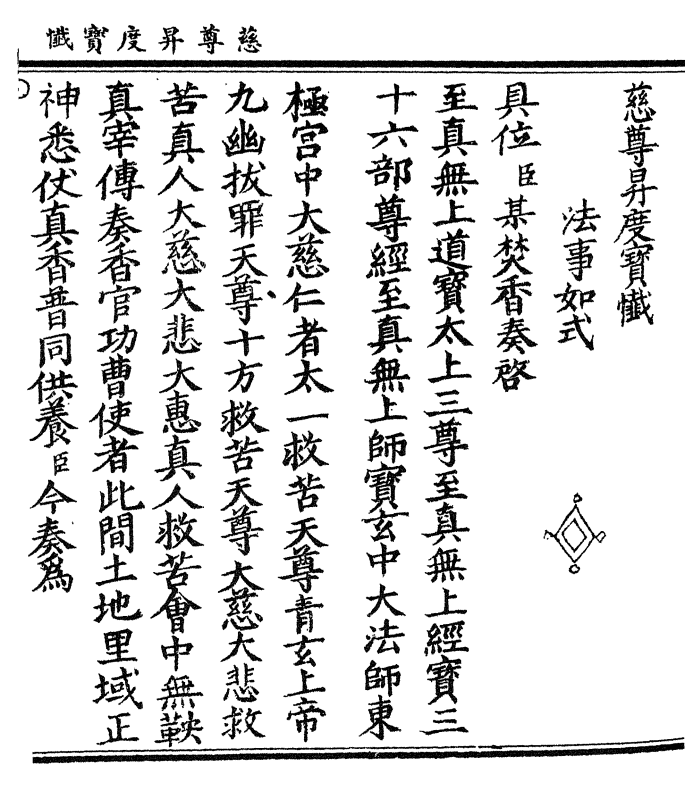 慈尊昇度寶懺
慈尊昇度寶懺
法事如式
具位臣某焚香奏啓
至真無上道寶太上三尊至真無上經寶三
十六部尊經至真無上師寶玄中大法師東
極宮中大慈仁者太一救苦天尊青玄上帝
九幽拔罪天尊十方救苦天尊大慈大悲救
苦真人大慈大悲大惠真人救苦會中無鞅
真宰傳奏香官功曹使者此間土地里域正
神悉仗真香普同供養臣今奏爲